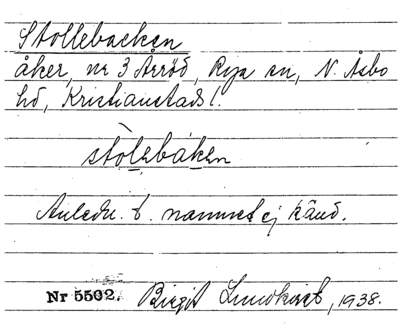 Stollebacken
åker, nr 3 Arröd, Rya sn, N. Åsbo
hd, Kristianstads l.
stòlebáken
Anledn. t. namnet ej känd.
Nr 5502. Birgit Lundkvist, 1938.